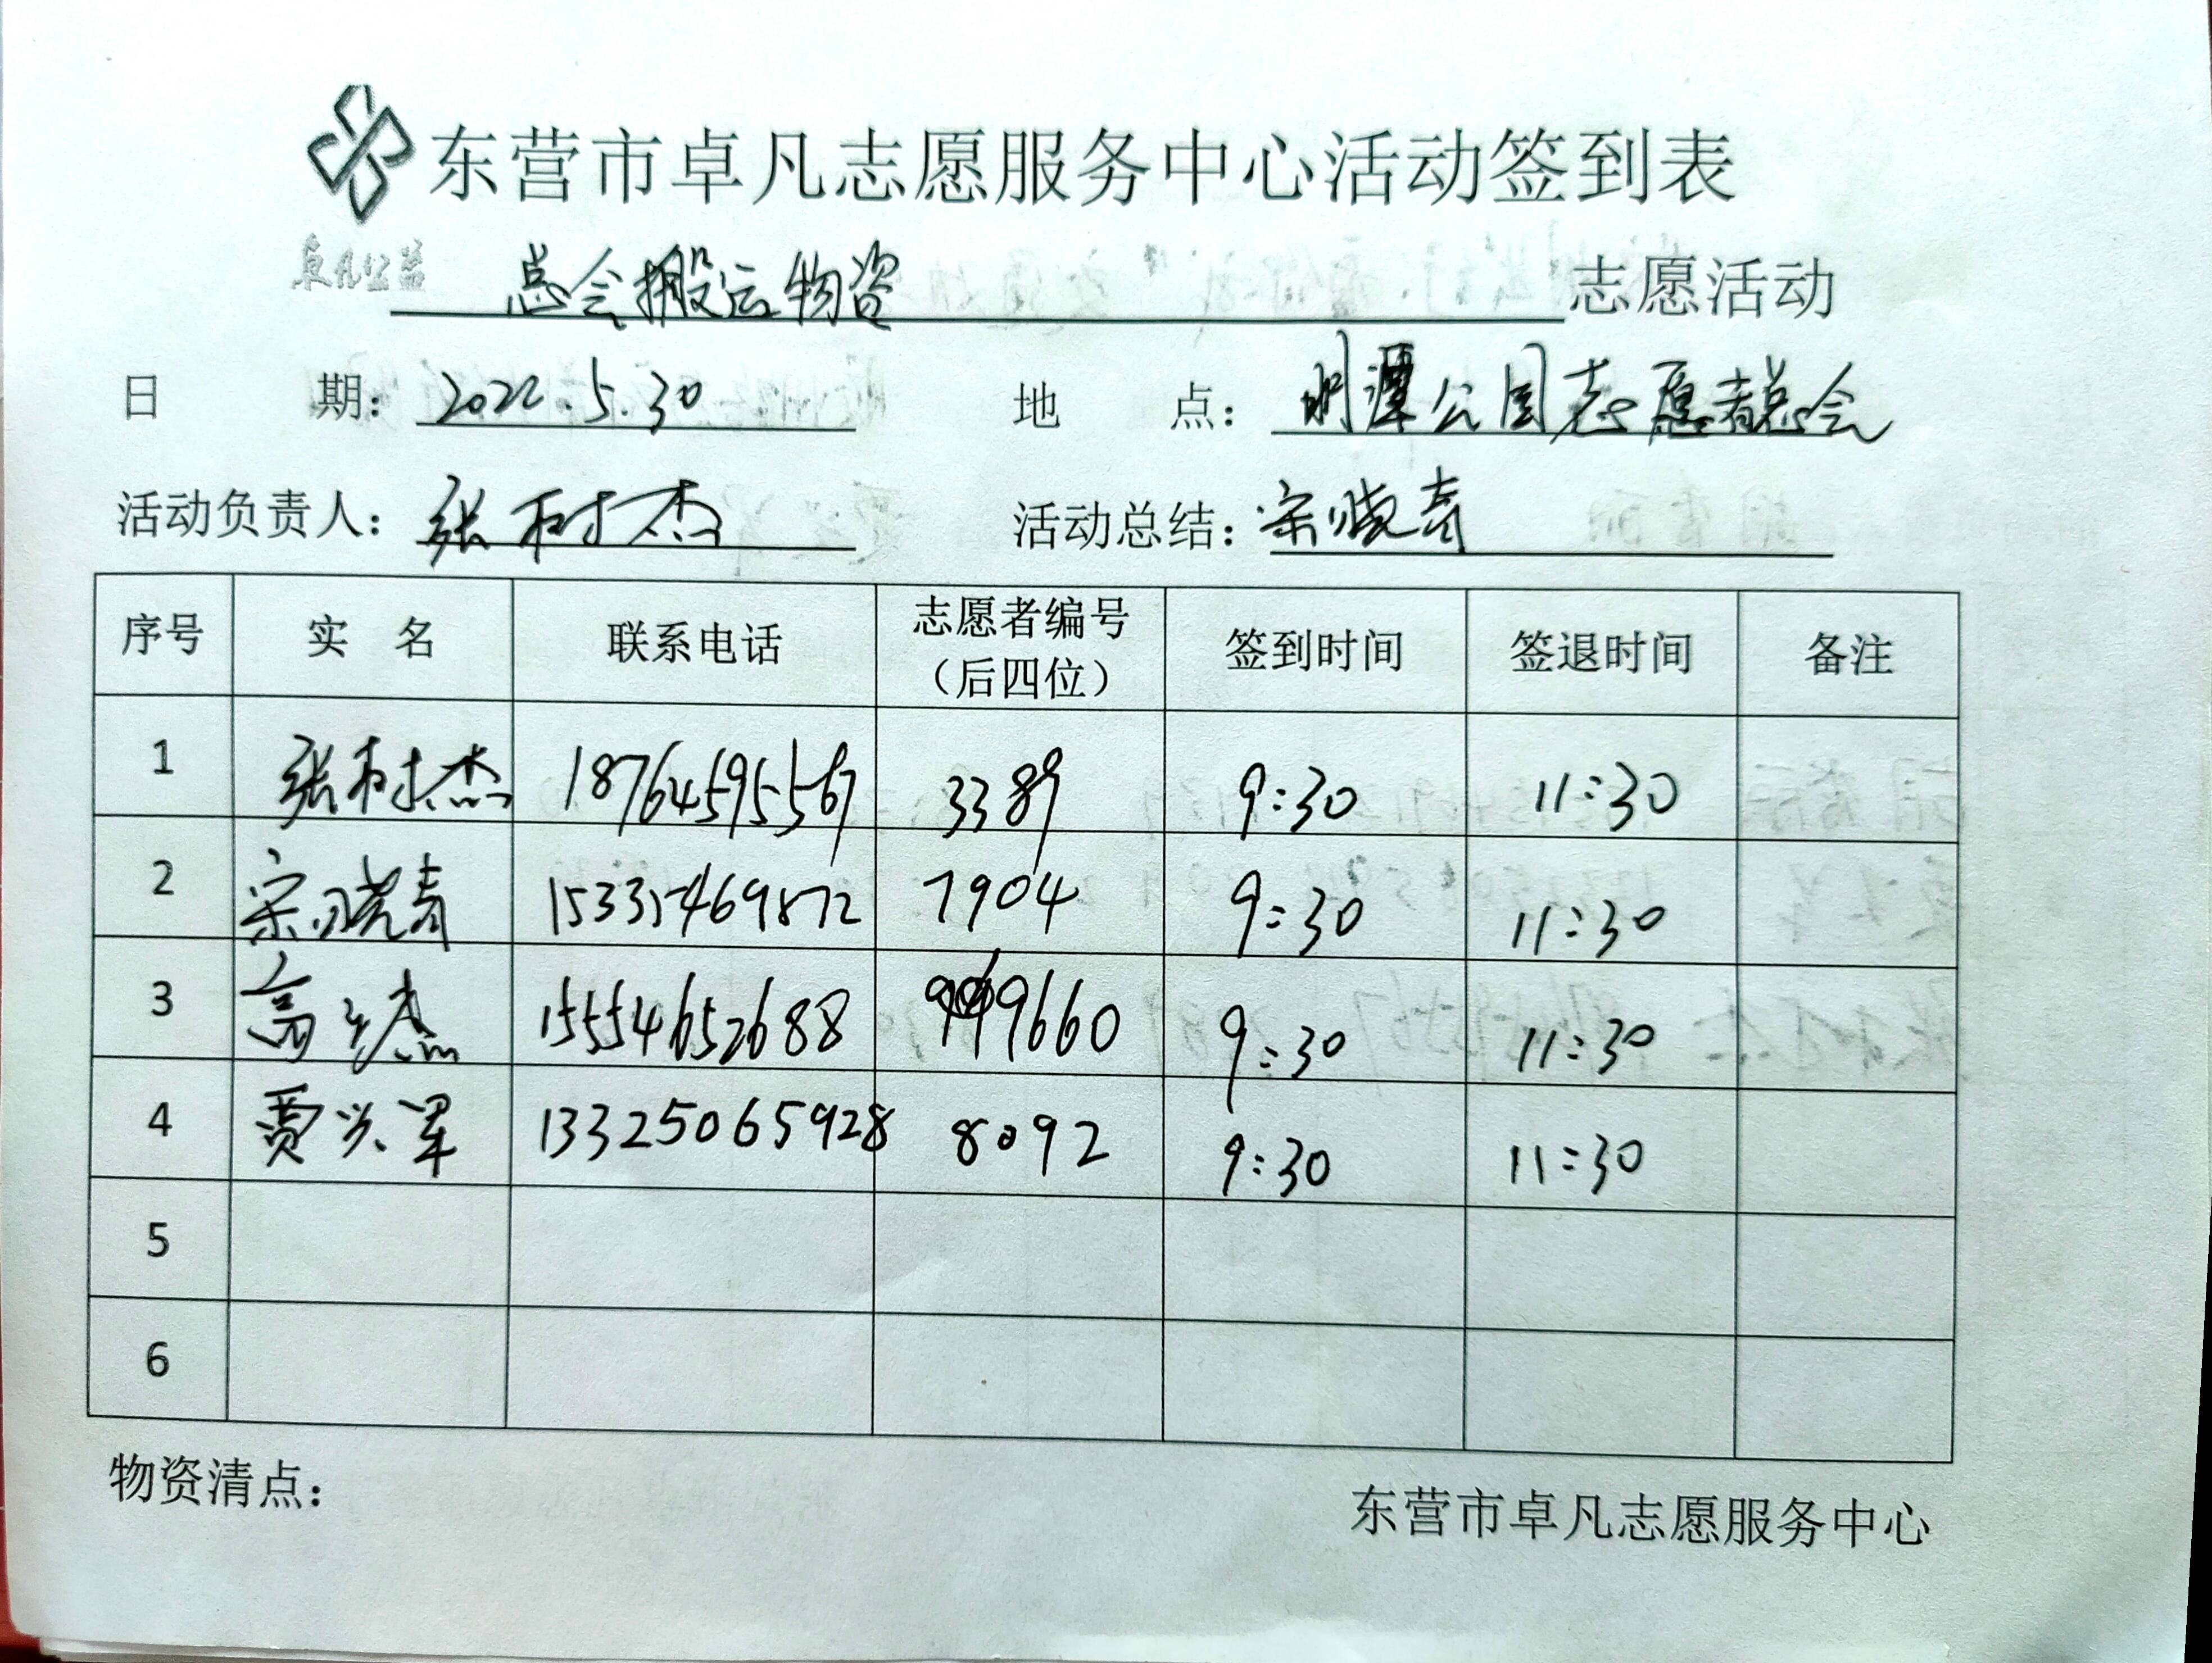 东营市卓凡志愿服务中心活动签到表
卓凡公益
总会搬运物资 志愿活动
日 期: 2022.5.30 地 点: 明潭公园志愿者总会
活动负责人: 张树杰 活动总结: 宋晓青
序号 实 名 联系电话 志愿者编号（后四位） 签到时间 签退时间 备注
1 张树杰 18764595567 3389 9:30 11:30
2 宋晓青 15335469872 7904 9:30 11:30
3 高 杰 15554652688 9660 9:30 11:30
4 贾兴军 13325065928 8092 9:30 11:30
5
6
物资清点:
东营市卓凡志愿服务中心